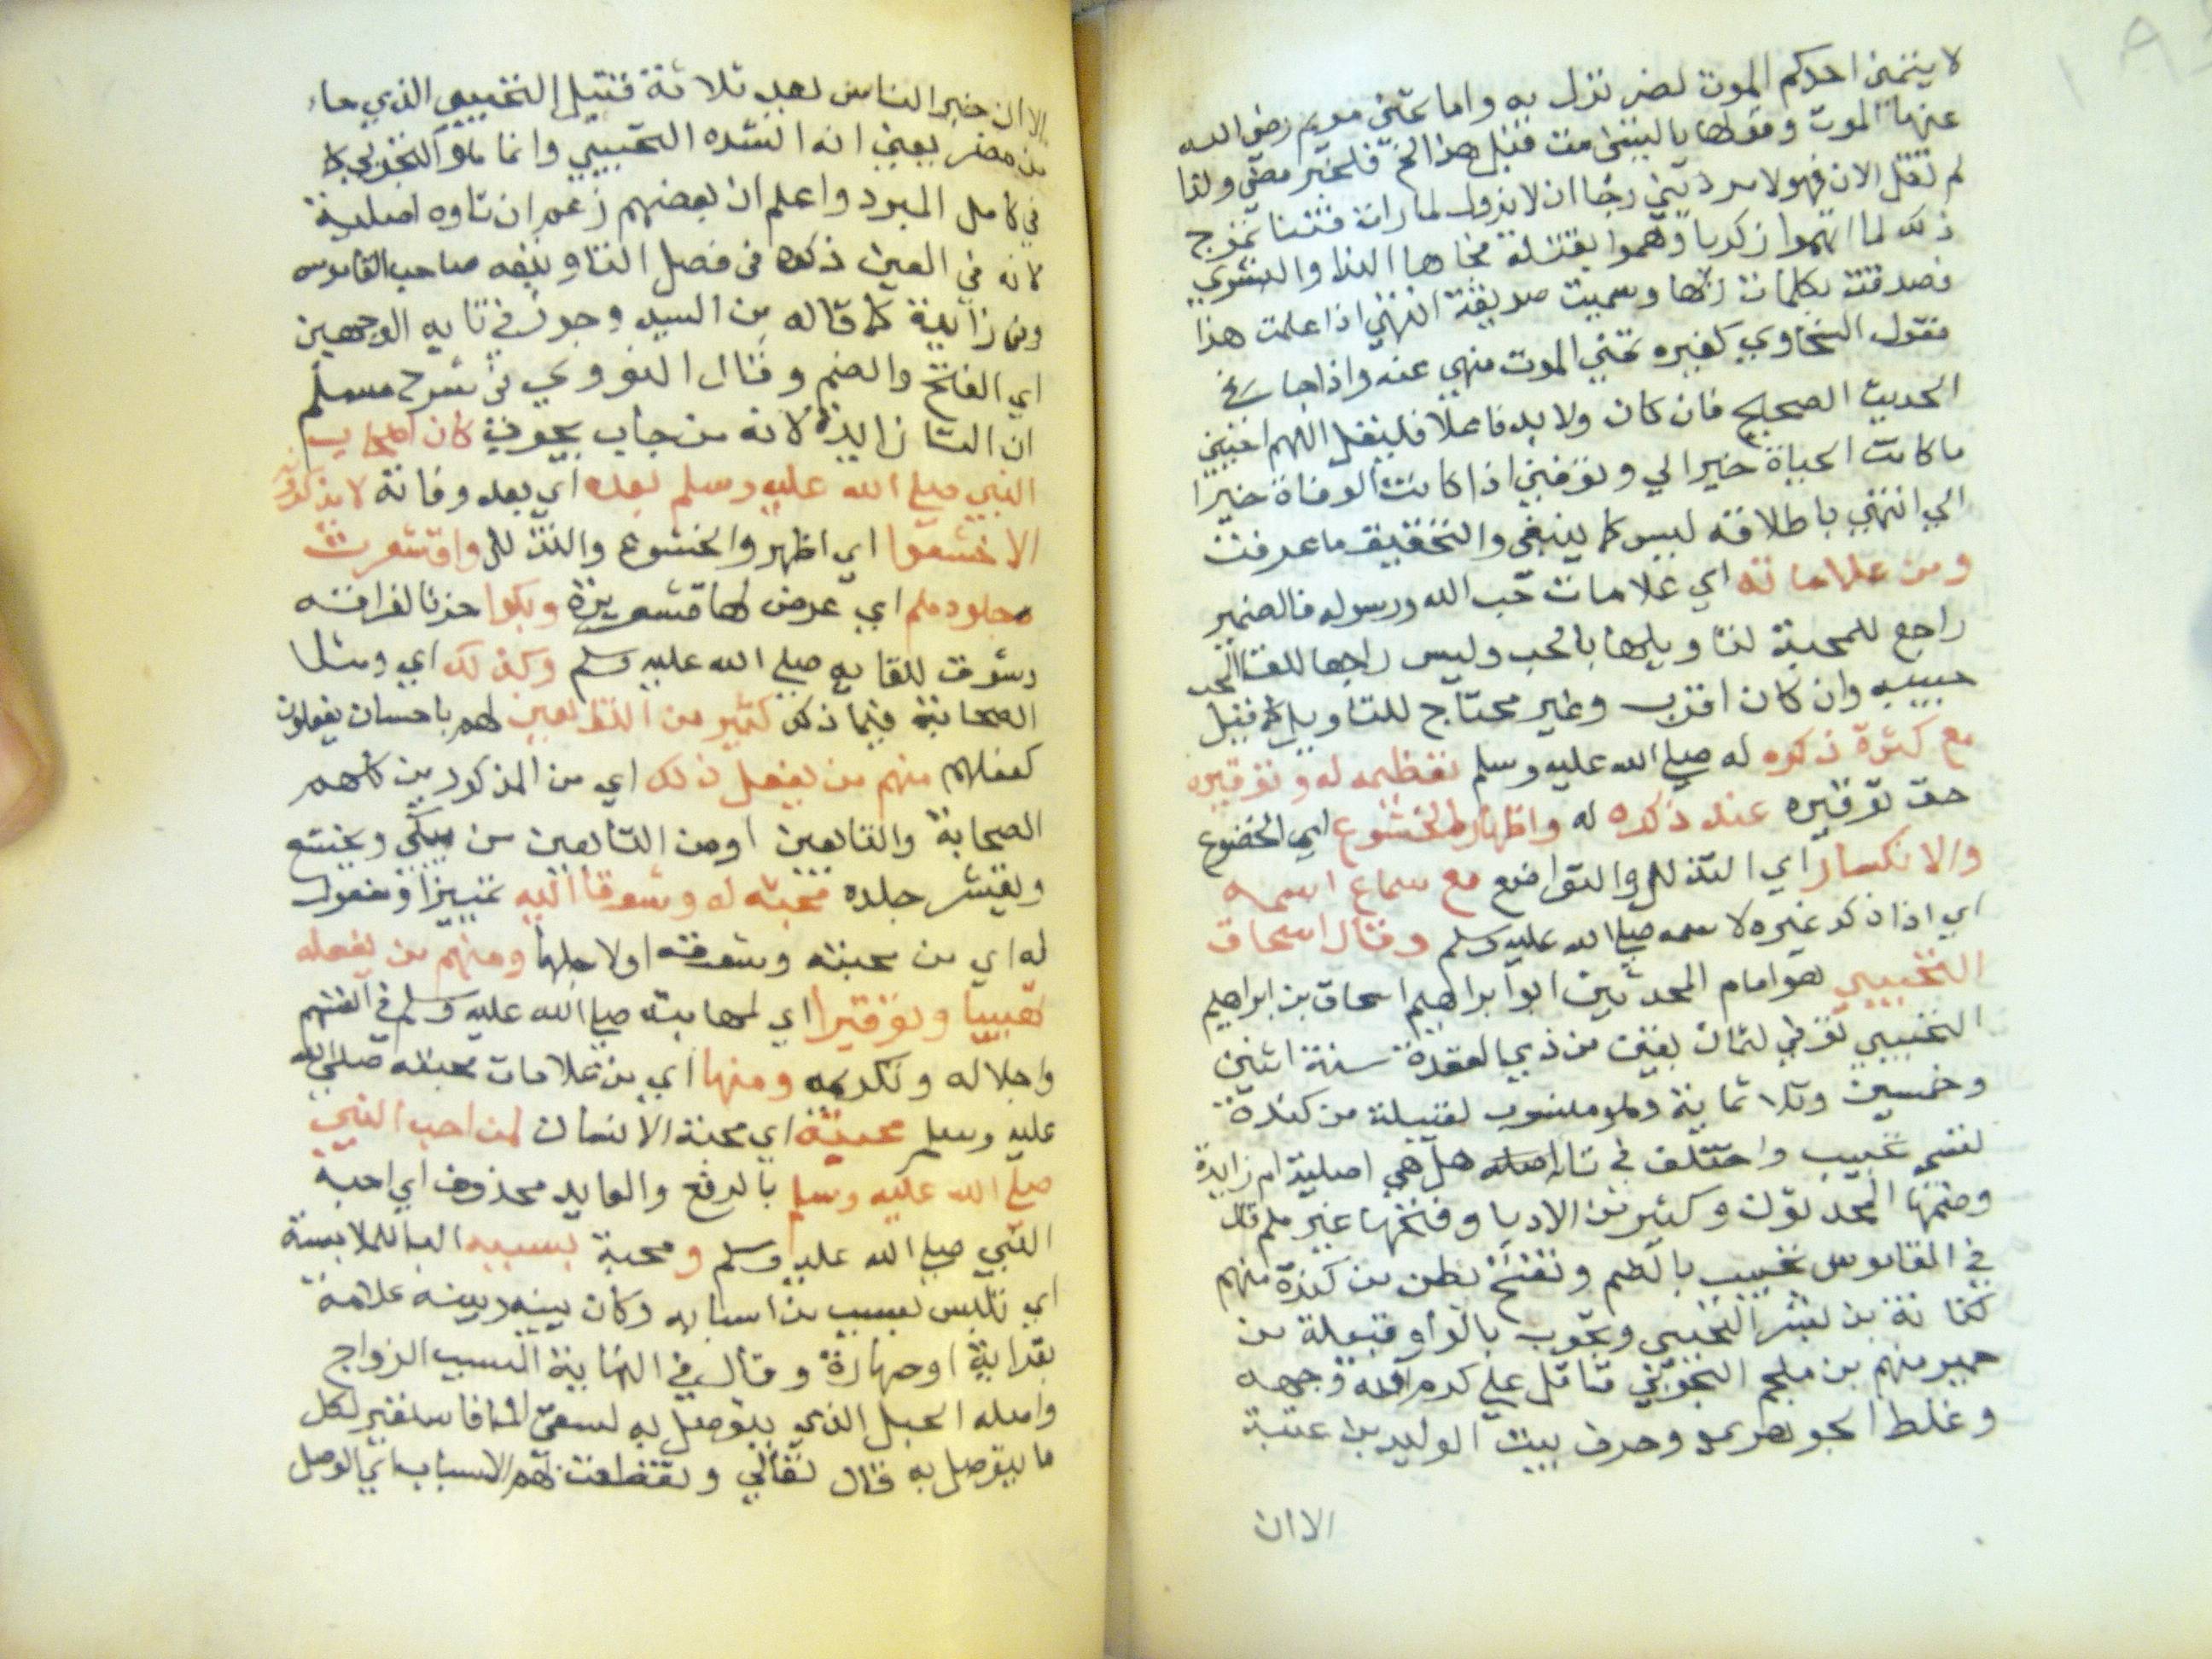 لا يتمنى احدكم الموت لضر نزل به واما تمني مريم رضي الله
عنها الموت وقولها يا ليتني مت قبل هذا الخ فلخير مضي ولذا
لم تقل الان فهو لامر ديني رجا ان لا يزول لما راته
ذلك لما اتهموا زكريا وهموا بقتله
فصدقت بكلمات ربها وسميت صديقة انتهى اذا علمت هذا
فقول السخاوي كغيره تمني الموت منهي عنه واذا جا في
الحديث الصحيح فان كان ولا بد فاعلا فليقل اللهم احيني
ما كانت الحياة خيرا لي وتوفني اذا كانت الوفاة خيرا
لي انتهي باطلاقه ليس كما ينبغي والتحقيق ما عرفت
ومن علاماته اي علامات حب الله ورسوله فالضمير
راجع للمحبة لتاويلها بالحب وليس راجعا للقا
حبيبه وان كان اقرب وغير محتاج للتاويل كما قيل
مع كثرة ذكره له صلي الله عليه وسلم تعظيمه له وتوقيره
حق توقيره عند ذكره له واظهار الخشوع اي الخضوع
والانكسار اي التذلل والتواضع مع سماع اسمه
اي اذا ذكر غيره لاسمه صلي الله عليه وسلم وقال اسحاق
التجيبي هو امام المحدثين ابو ابراهيم اسحاق بن ابراهيم
التجيبي توفي لثمان بقين من ذي القعدة سنة اثنين
وخمسين وثلاثماية وهو منسوب لقبيلة من كندة
تسمي تجيب واختلف في تائه هل هي اصلية ام زايدة
وضمها المحدثون وكثير من الادبا وفتحها غيرهم قال
في القاموس تجيب بالضم وتفتح بطن من كندة منهم
كنانة بن بشر التجيبي وتجوب بالواو قبيلة من
حمير منهم بن ملجم التجوبي قاتل علي كرم الله وجهه
وغلط الجوهري وحرف بيت الوليد بن عقبة
الا ان
الا ان خير الناس بعد ثلاثة قتيل التجيبي الذي جاء
من مضر يعني انه انشده التجيبي وانما هو التجوبي كما
في كامل المبرد واعلم ان بعضهم زعم ان تاوه اصلية
لانه في العين ذكره في فصل التا وتبعه صاحب القاموس
وهي زايدة كما قاله بن السيد وجوز في تايه الوجهين
اي الفتح والضم وقال النووي في شرح مسلم
ان التا زايدة لانه من جاب يجوب كان اصحاب
النبي صلي الله عليه وسلم بعده اي بعد وفاته لا يذكرونه
الا خشعوا اي اظهروا الخشوع والتذلل واقشعرت
جلودهم اي عرض لها قشعريرة وبكوا حزنا لفراقه
وشوقا للقايه صلي الله عليه وسلم وكذلك اي ومثل
الصحابة فيما ذكر كثير من التابعين لهم باحسان يفعلون
كفعلهم منهم من يفعل ذلك اي من المذكورين كلهم
الصحابة والتابعين او من التابعين من يبكي ويخشع
ويقشعر جلده محبة له وشوقا اليه تمييز او مفعول
له اي من محبته وشوقه او لاجلها ومنهم من يفعله
تهيبا وتوقيرا اي لمهابته صلي الله عليه وسلم في انفسهم
واجلاله وتكريمه ومنها اي من علامات محبته صلي الله
عليه وسلم محبته اي محبة الانسان لمن احب النبي
صلي الله عليه وسلم بالرفع والعايد محذوف اي احبه
النبي صلي الله عليه وسلم ومحبة بسببه البا للملابسة
اي تلبس بسبب من اسبابه وكان بينه وبينه علامة
بقرابة او صهارة وقال في النهاية السبب الزواج
واصله الحبل الذي يتوصل به لسقي الما فاستعير لكل
ما يتوصل به قال تعالي وتقطعت بهم الاسباب اي الوصل